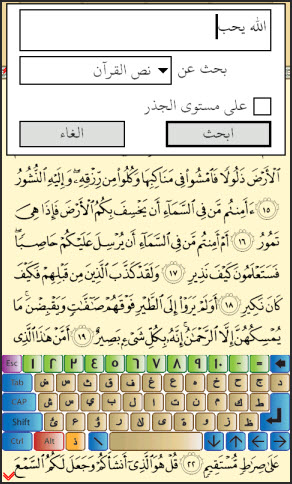 الله يحب
بحث عن
نص القرآن
على مستوى الجذر
ابحث
الغاء
ٱلْأَرْضَ ذَلُولًا فَٱمْشُوا۟ فِى مَنَاكِبِهَا وَكُلُوا۟ مِن رِّزْقِهِۦ ۖ وَإِلَيْهِ ٱلنُّشُورُ
١٥ ءَأَمِنتُم مَّن فِى ٱلسَّمَآءِ أَن يَخْسِفَ بِكُمُ ٱلْأَرْضَ فَإِذَا هِىَ
تَمُورُ ١٦ أَمْ أَمِنتُم مَّن فِى ٱلسَّمَآءِ أَن يُرْسِلَ عَلَيْكُمْ حَاصِبًا ۖ
فَسَتَعْلَمُونَ كَيْفَ نَذِيرِ ١٧ وَلَقَدْ كَذَّبَ ٱلَّذِينَ مِن قَبْلِهِمْ فَكَيْفَ
كَانَ نَكِيرِ ١٨ أَوَلَمْ يَرَوْا۟ إِلَى ٱلطَّيْرِ فَوْقَهُمْ صَٰٓفَّٰتٍ وَيَقْبِضْنَ ۚ مَا
يُمْسِكُهُنَّ إِلَّا ٱلرَّحْمَٰنُ ۚ إِنَّهُۥ بِكُلِّ شَىْءٍۭ بَصِيرٌ ١٩ أَمَّنْ هَٰذَا ٱلَّذِى
Esc ١ ٢ ٣ ٤ ٥ ٦ ٧ ٨ ٩ ٠ - =
Tab ض ص ث ق ف غ ع ه خ ح ج د
CAP ش س ي ب ل ا ت ن م ك ط
Shift ئ ء ؤ ر لا ى ة و ز ظ
Ctrl Alt ذ \
عَلَىٰ صِرَٰطٍ مُّسْتَقِيمٍ ٢٢ قُلْ هُوَ ٱلَّذِىٓ أَنشَأَكُمْ وَجَعَلَ لَكُمُ ٱلسَّمْعَ